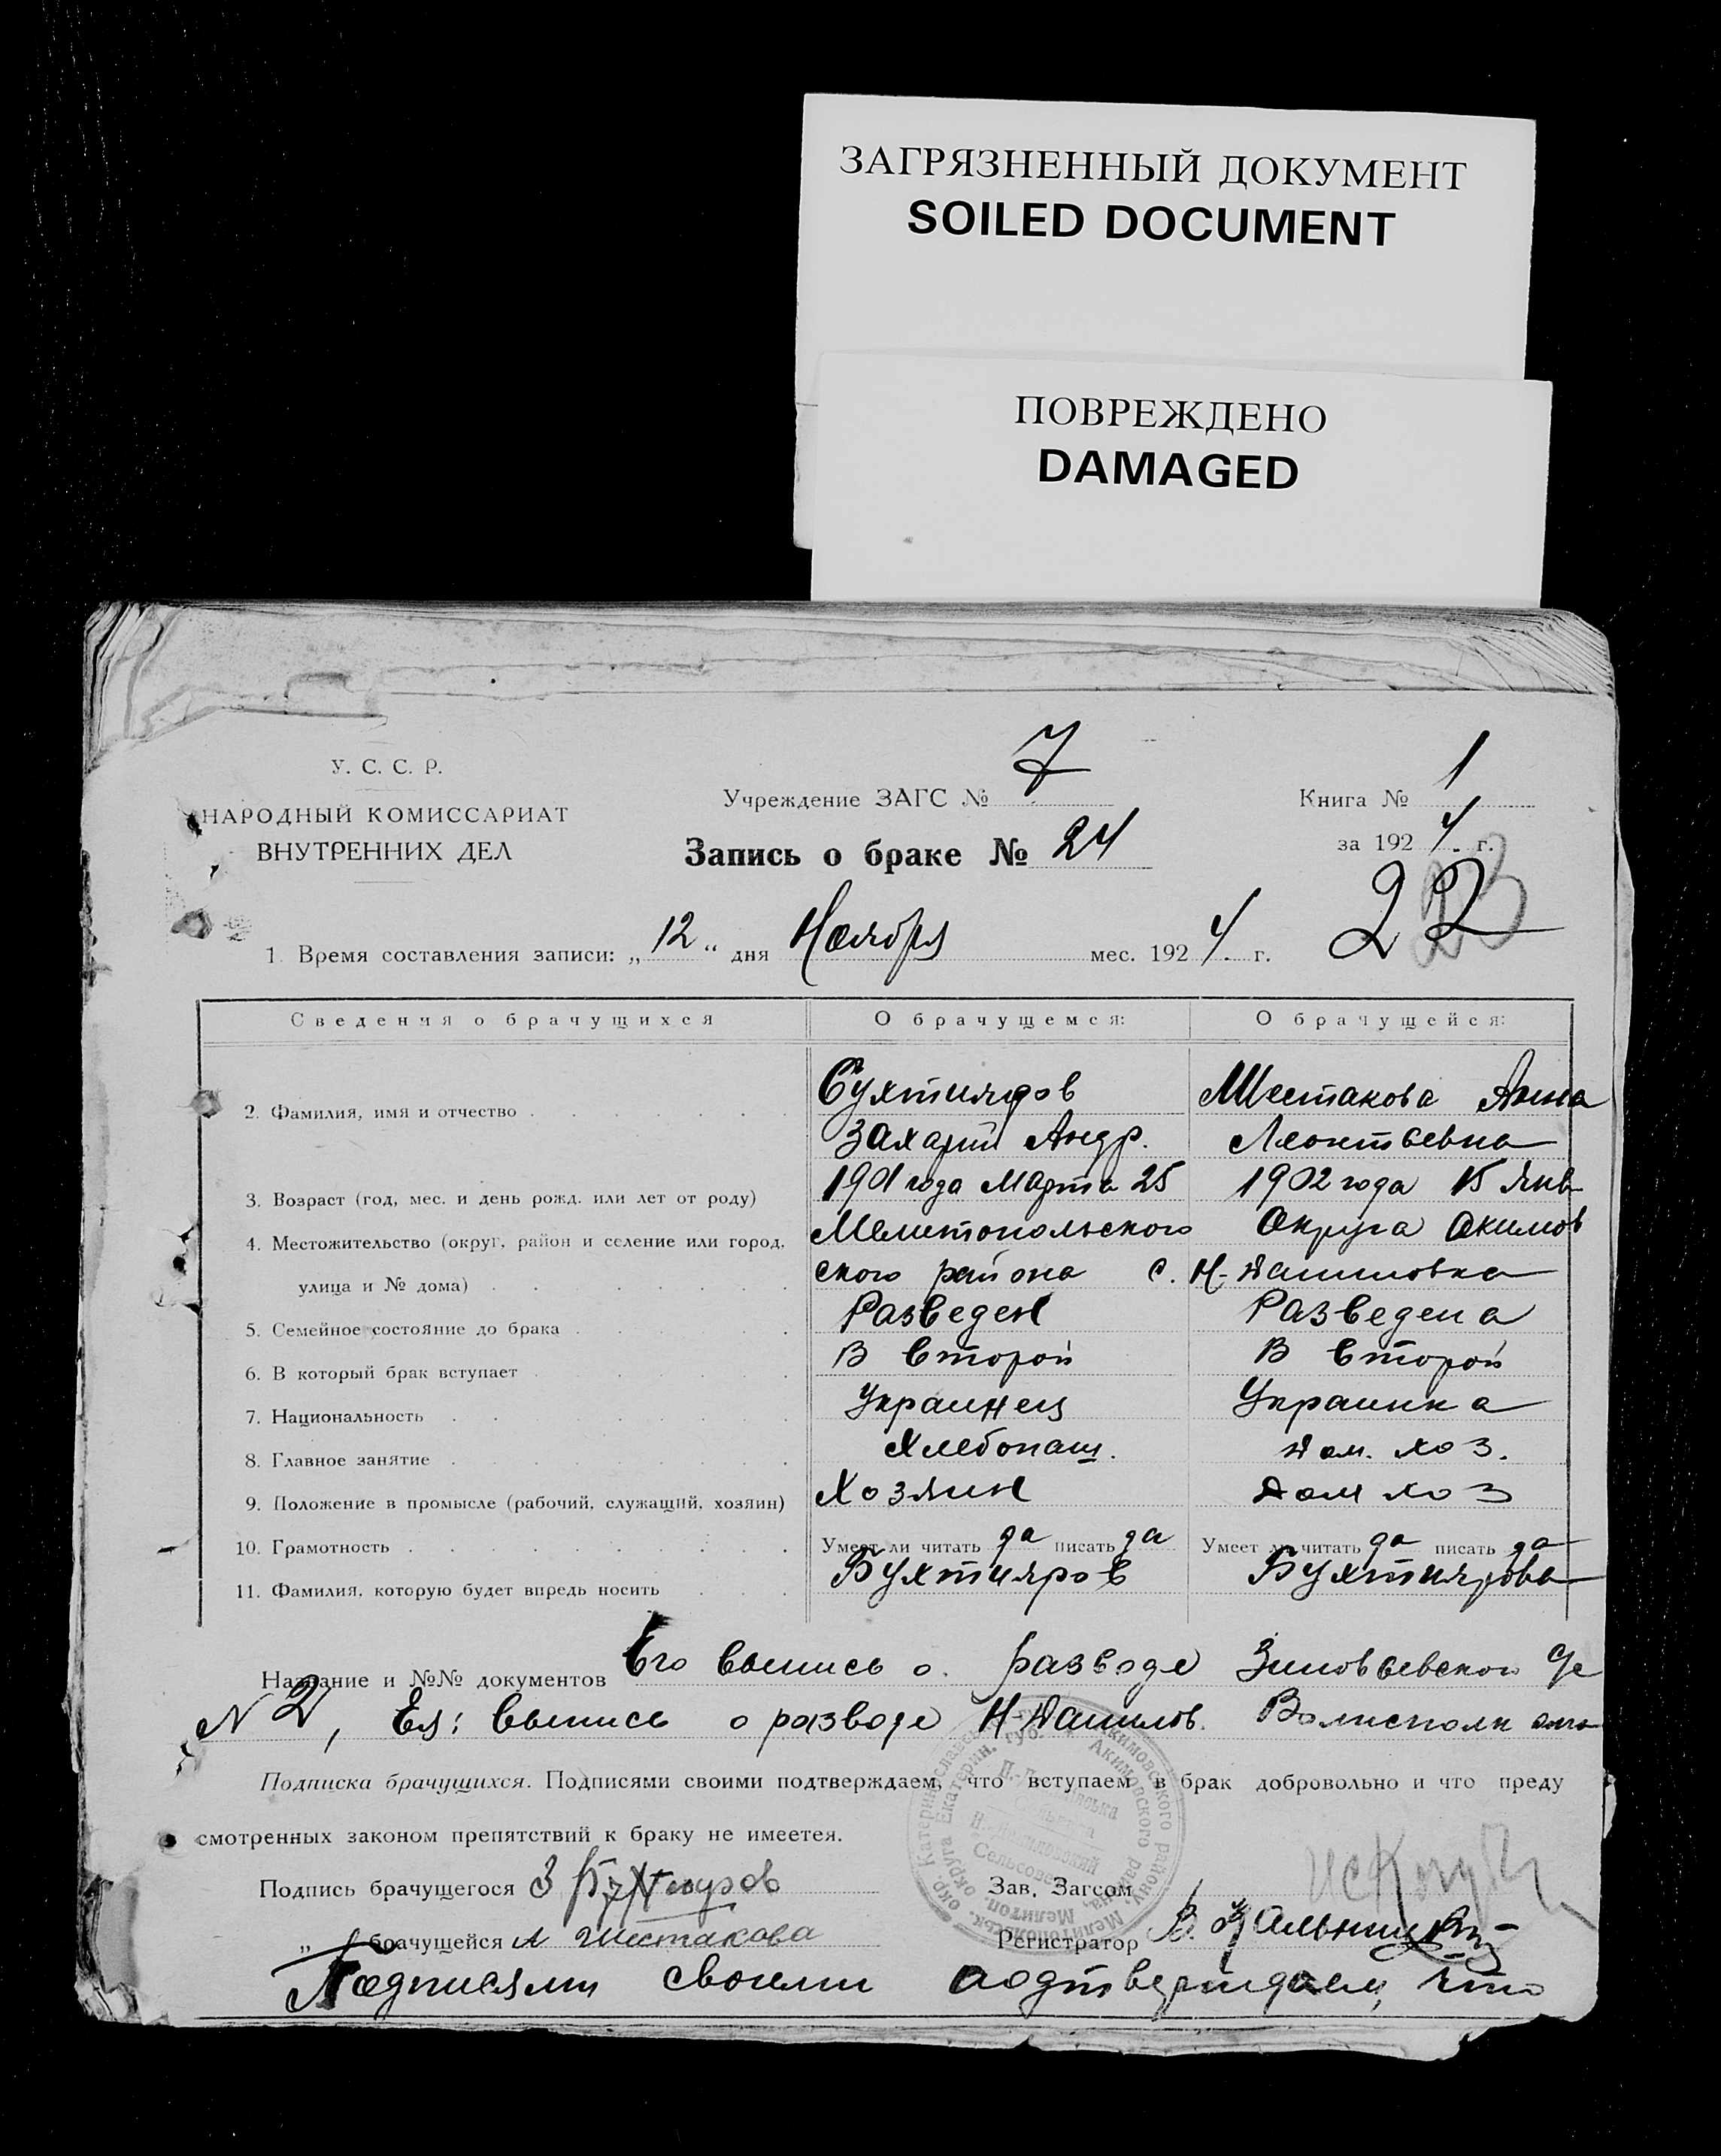 ЗАГРЯЗНЕННЫЙ ДОКУМЕНТ
SOILED DOCUMENT
ПОВРЕЖДЕНО
DAMAGED
У. С. С. Р.
НАРОДНЫЙ КОМИССАРИАТ
ВНУТРЕННИХ ДЕЛ
Учреждение ЗАГС № 7
Книга № 1
Запись о браке № 24
за 1924. г.
22
1. Время составления записи: „12“ дня Ноября мес. 1924. г.
Сведения о брачущихся О брачущемся: О брачущейся:
2. Фамилия, имя и отчество Бухтияров Шестакова Анна
Захарий Андр. Леонтьевна
3. Возраст (год, мес. и день рожд. или лет от роду) 1901 года Марта 25 1902 года 15 Янв
4. Местожительство (округ, район и селение или город, Мелитопольского Округа Акимов
улица и № дома) ского района с. Н-Даниловка
5. Семейное состояние до брака Разведен Разведена
6. В который брак вступает В второй В второй
7. Национальность Украинец Украинка
8. Главное занятие Хлебопаш. Дом. хоз.
9. Положение в промысле (рабочий, служащий, хозяин) Хозяин Дом хоз
10. Грамотность Умеет ли читать да писать да Умеет ли читать да писать да
11. Фамилия, которую будет впредь носить Бухтияров Бухтиярова
Название и №№ документов Его выпись о разводе Зиновьевского
N 2, Ея: выпись о разводе Н-Данилов.
Подписка брачущихся. Подписями своими подтверждаем, что вступаем в брак добровольно и что преду
смотренных законом препятствий к браку не имеется.
Подпись брачущегося З Бухтияров Зав. Загсом
„ брачущейся А Шестакова Регистратор
Подписями своими подтверждаем, что